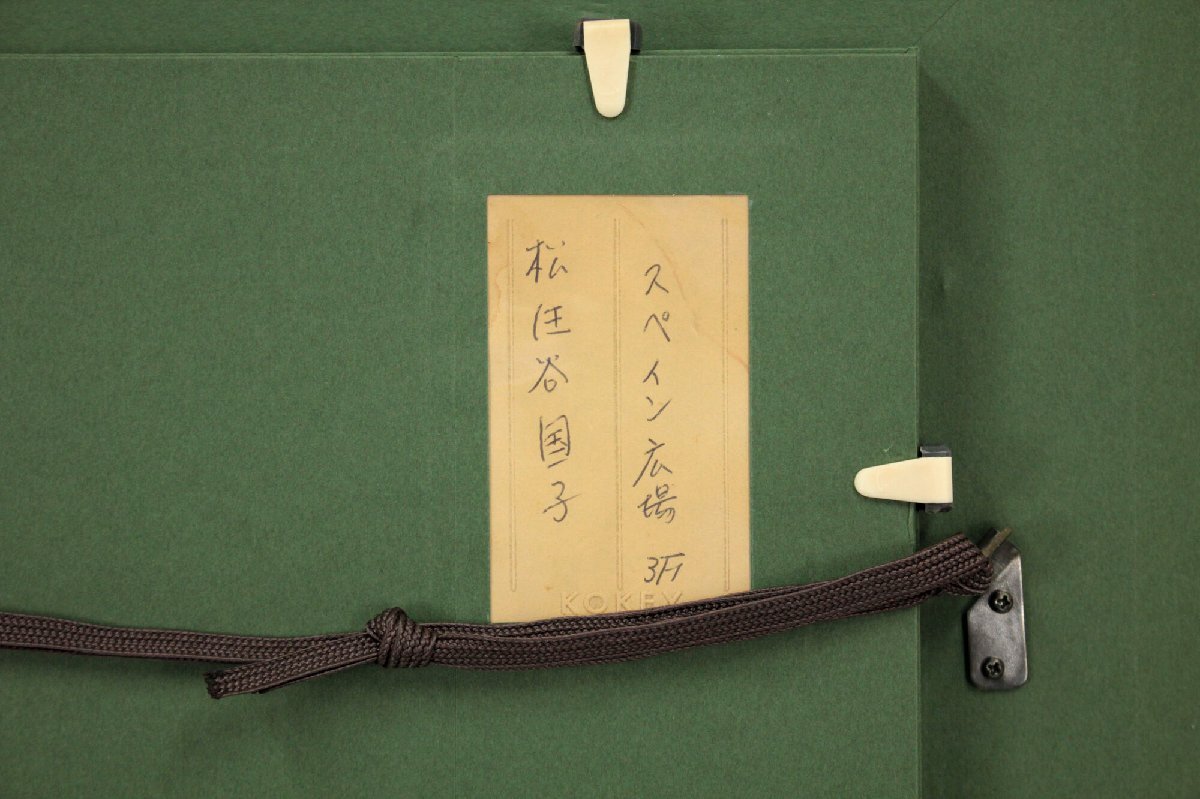 スペイン広場 3F
松任谷国子
KOKEY